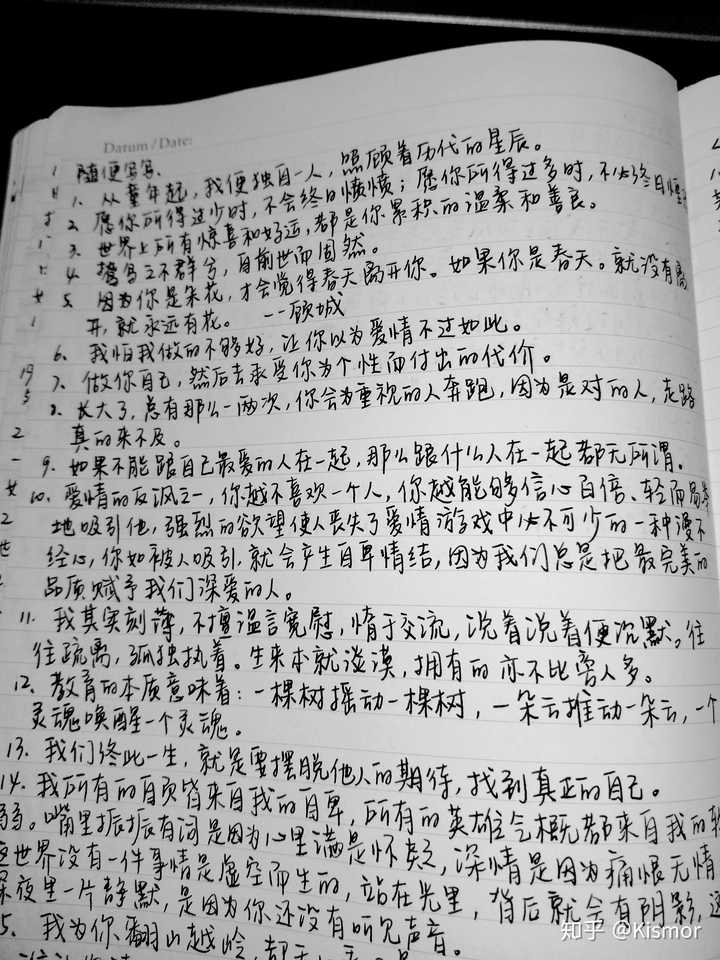 Datum / Date:
随便写写、
1. 从童年起，我便独自一人，照顾着历代的星辰。
2. 愿你所得过少时，不会终日愤愤；愿你所得过多时，不必终日惶
3. 世界上所有惊喜和好运，都是你累积的温柔和善良。
4. 鸷鸟之不群兮，自前世而固然。
5. 因为你是朵花，才会觉得春天离开你。如果你是春天。就没有离
开，就永远有花。 --顾城
6. 我怕我做的不够好，让你以为爱情不过如此。
7. 做你自己，然后去承受你为个性而付出的代价。
8. 长大了，总有那么一两次，你会为重视的人奔跑，因为是对的人，走路
真的来不及。
9. 如果不能跟自己最爱的人在一起，那么跟什么人在一起都无所谓。
10. 爱情的反讽之一，你越不喜欢一个人，你越能够信心百倍、轻而易举
地吸引他，强烈的欲望使人丧失了爱情游戏中必不可少的一种漫不
经心，你如被人吸引，就会产生自卑情结，因为我们总是把最完美的
品质赋予我们深爱的人。
11. 我其实刻薄，不擅温言宽慰，惰于交流，说着说着便沉默。往
往疏离，孤独执着。生来本就淡漠，拥有的亦不比旁人多。
12. 教育的本质意味着：一棵树摇动一棵树，一朵云推动一朵云，一个
灵魂唤醒一个灵魂。
13. 我们终此一生，就是要摆脱他人的期待，找到真正的自己。
14. 我所有的自负皆来自我的自卑，所有的英雄气概都来自我的软
弱。嘴里振振有词是因为心里满是怀疑，深情是因为痛恨无情
这世界没有一件事情是虚空而生的，站在光里，背后就会有阴影，这
深夜里一片静默，是因为你还没有听见声音。
5. 我为你翻山越岭，却无
知乎 @Kismor